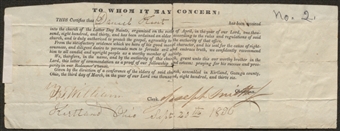 TO WHOM IT MAY CONCERN:
No. 2
THIS Certifies that Daniel has been received
into the church of the Latter Day Saints, organized on the sixth of April, in the year of our Lord, two thousand
eight hundred, and thirty, and has been ordained an elder according to the rules and regulations of said
church, and is duly authorized to preach the gospel, agreeably to the authority of that office.
From the satisfactory evidence which we have of his good moral character, and his zeal for the cause of righteousness,
and diligent desire to persuade men to forsake evil and embrace truth, we confidently recommend
him to all candid and upright people as a worthy member of society.
We, therefore, in the name, and by the authority of this church, grant unto this our worthy brother in the
Lord, this letter of commendation as a proof of our fellowship and esteem: praying for his success and prosperity
in our Redeemer's cause.
Given by the direction of a conference of the elders of said church, assembled in Kirtland, Geauga county,
Ohio, the third day of March, in the year of our Lord one thousand, eight hundred, and thirty six.
F. G. Williams Clerk. Joseph Smith Chairman.
Kirtland Ohio 1836